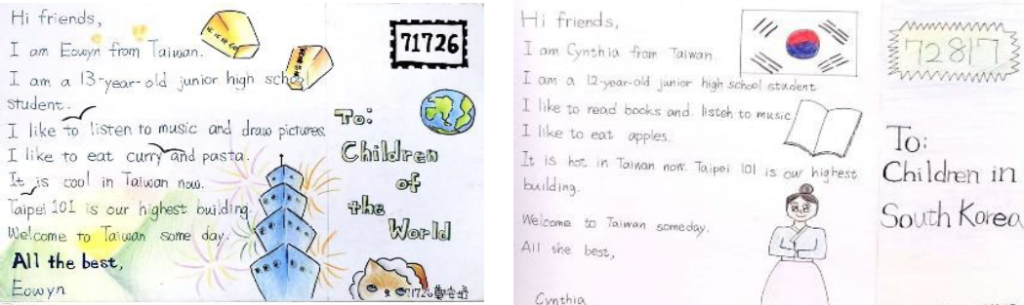 Hi friends,
I am Eowyn from Taiwan.
I am a 13-year-old junior high school
student.
I like to listen to music and draw pictures.
I like to eat curry and pasta.
It is cool in Taiwan now.
Taipei 101 is our highest building.
Welcome to Taiwan some day.
All the best,
Eowyn
71726
To:
Children
of
the
World
71726
Hi friends,
I am Cynthia from Taiwan.
I am a 12-year-old junior high school student
I like to read books and listen to music.
I like to eat apples.
It is hot in Taiwan now. Taipei 101 is our highest
building.
Welcome to Taiwan someday.
All the best,
Cynthia
72817
To:
Children in
South Korea